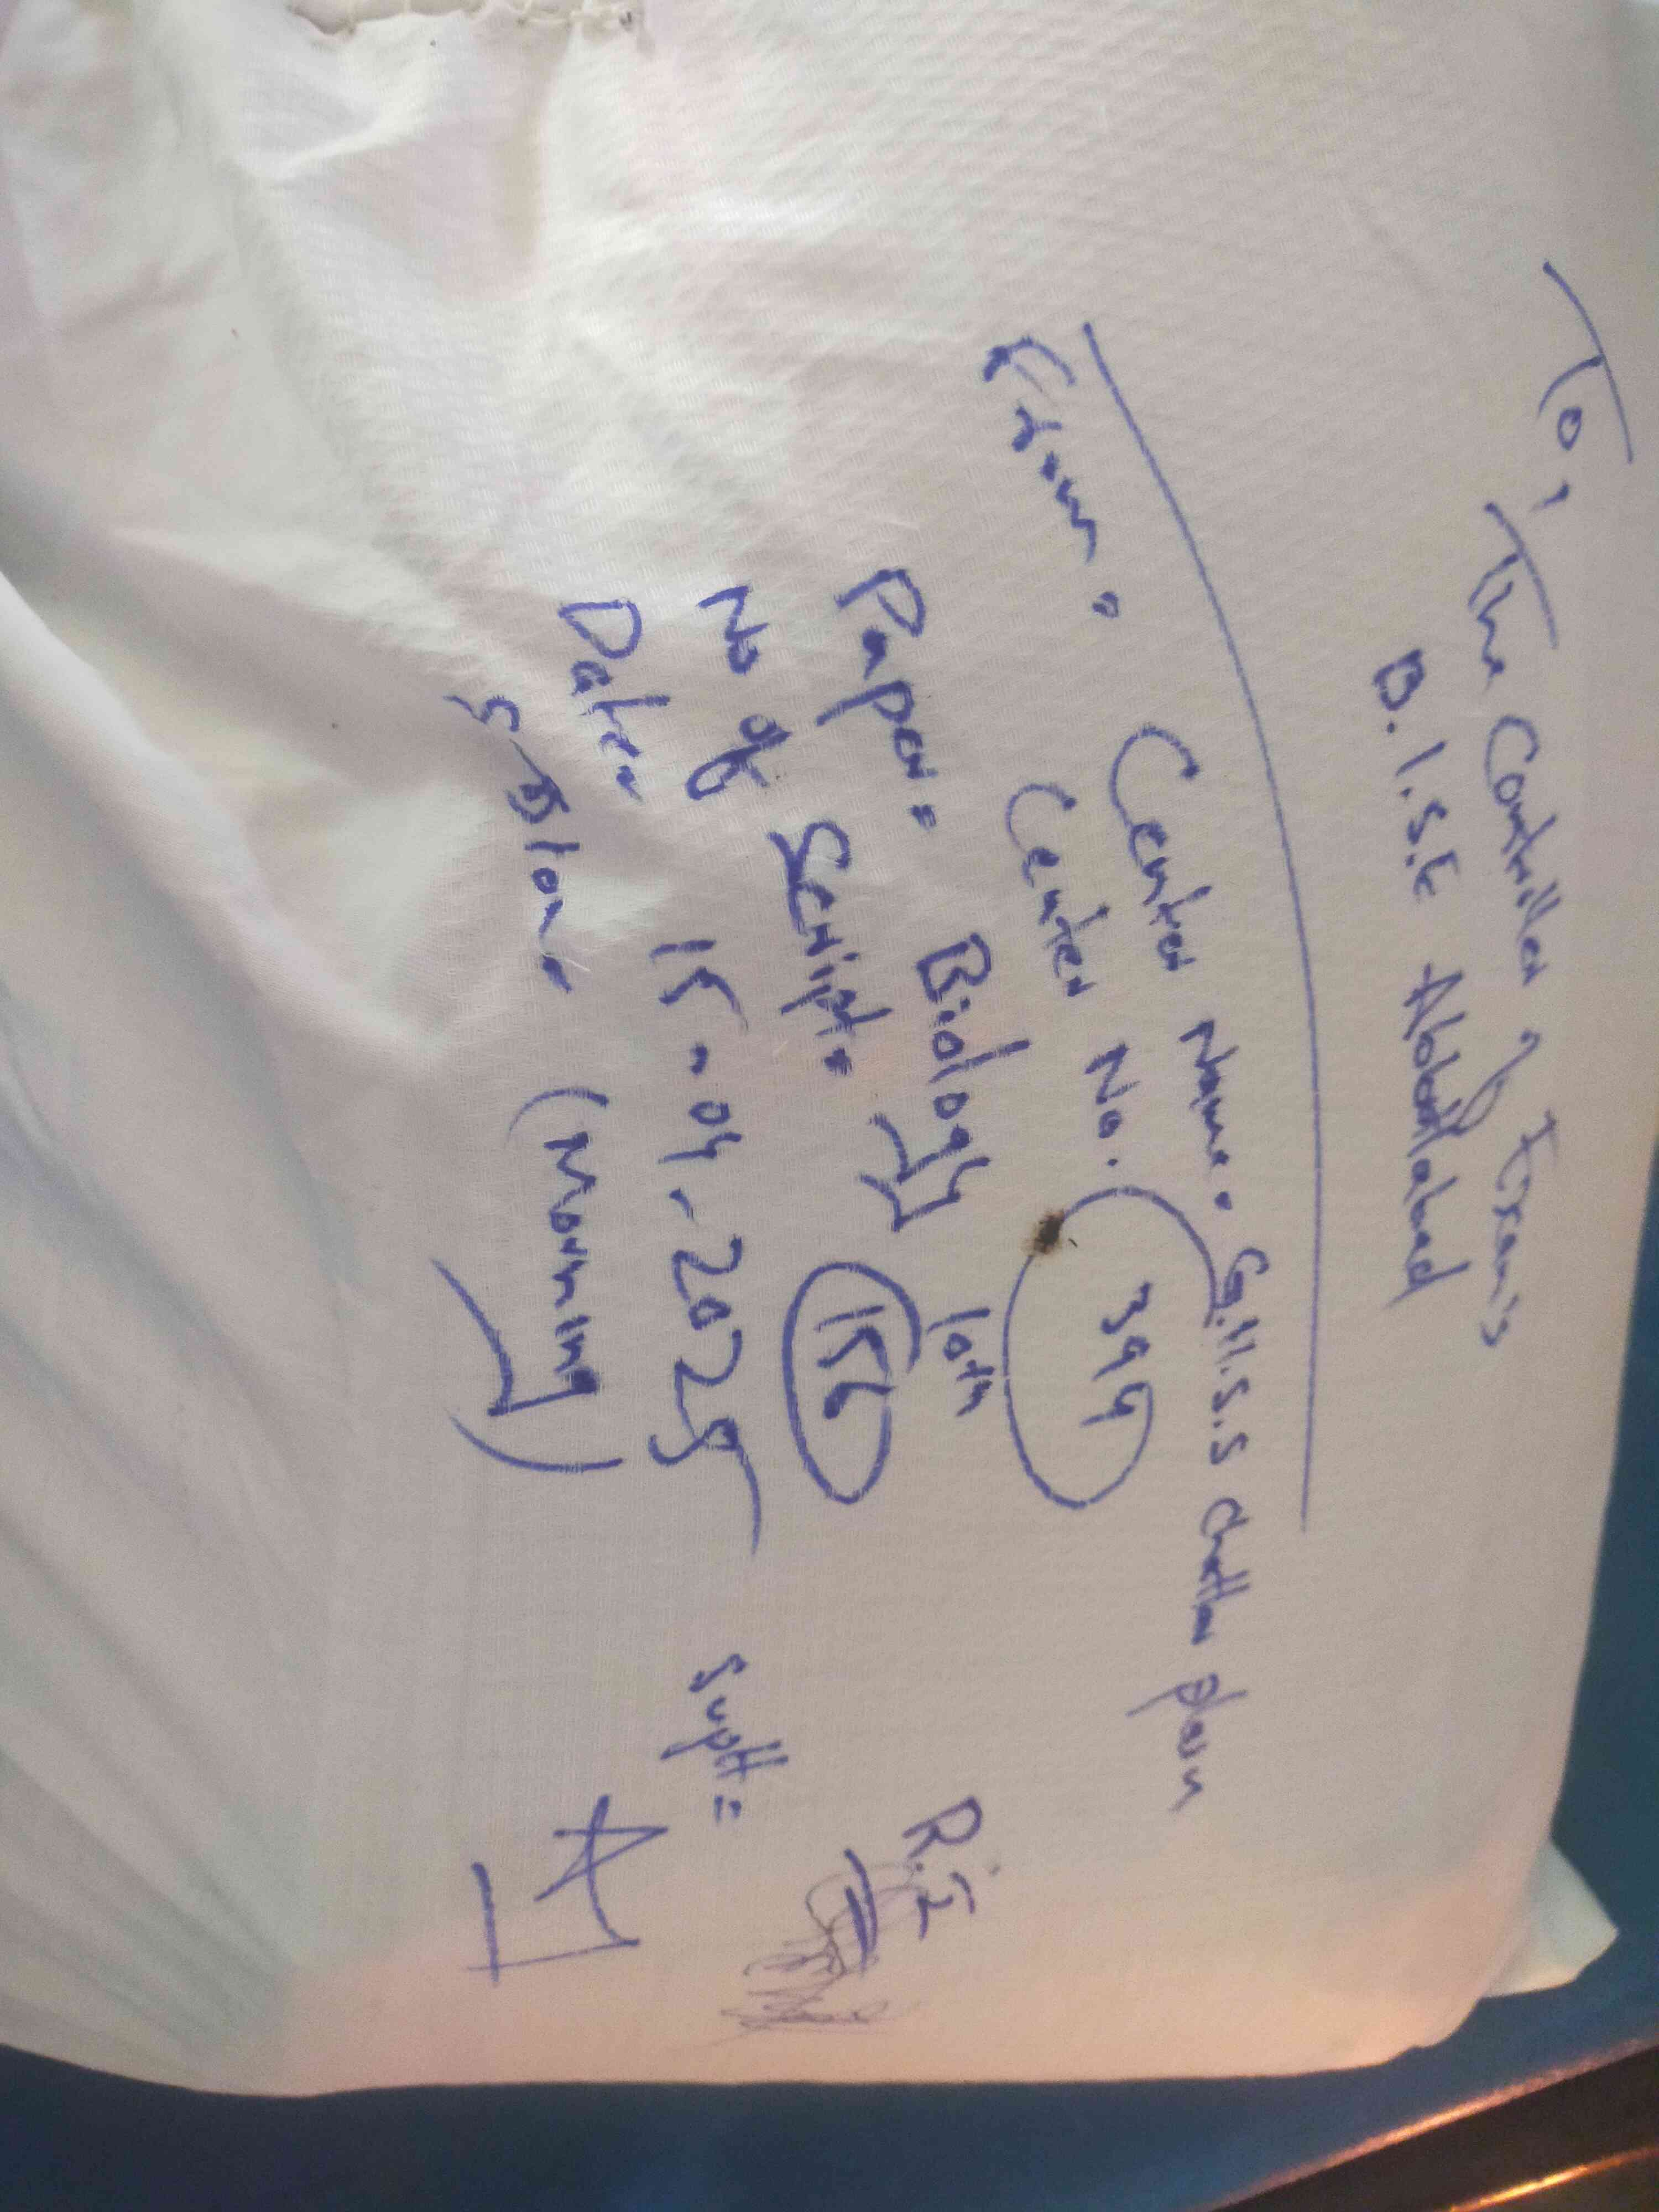 To,
The Controller of Exam's
B.I.S.E Abbottabad
From = Center Name = G.H.S.S Chattar plain
Center No. 399
Paper = Biology 10th
No of Script = 156
Date = 15-04-2025
Session (Morning)
Suptt =
R.I